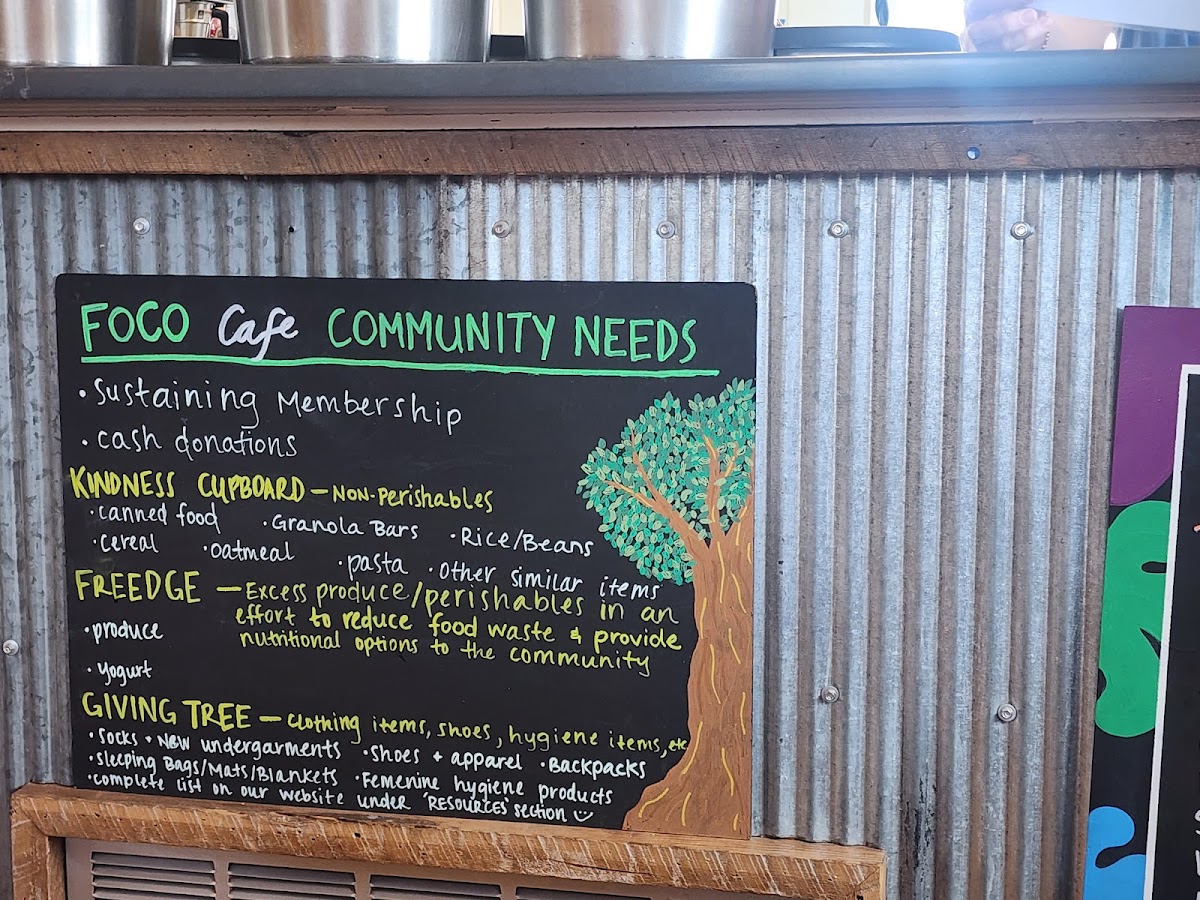 FOCO Cafe COMMUNITY NEEDS
• Sustaining Membership
• cash donations
KINDNESS CUPBOARD — NON-Perishables
• canned food • Granola Bars • Rice/Beans
• cereal • oatmeal • pasta • other similar items
FREEDGE — Excess produce/perishables in an
effort to reduce food waste & provide
• produce
nutritional options to the community
• Yogurt
GIVING TREE — Clothing items, shoes, hygiene items, etc
• Socks + NEW undergarments • Shoes + apparel • Backpacks
• Sleeping Bags/Mats/Blankets • Femenine hygiene products
• complete list on our website under 'RESOURCES section